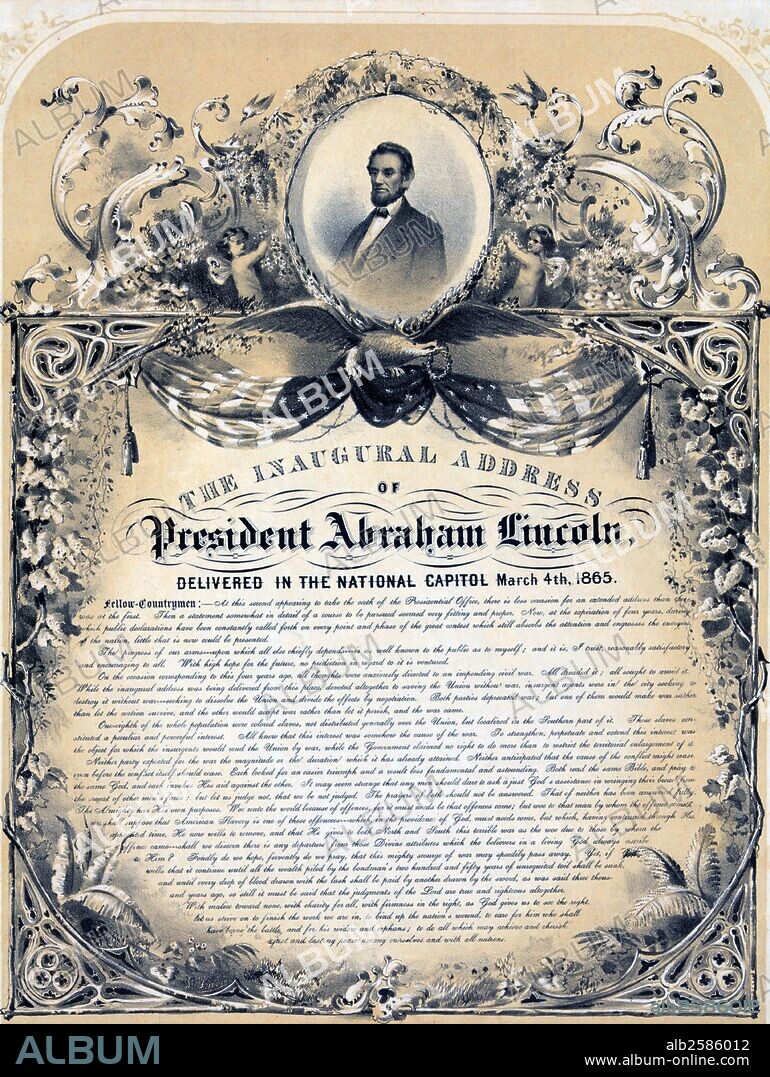 THE INAUGURAL ADDRESS
OF
President Abraham Lincoln,
DELIVERED IN THE NATIONAL CAPITOL March 4th, 1865.
Fellow-Countrymen:—At this second appearing to take the oath of the Presidential Office, there is less occasion for an extended address than there
was at the first. Then a statement somewhat in detail of a course to be pursued seemed very fitting and proper. Now, at the expiration of four years, during
which public declarations have been constantly called forth on every point and phase of the great contest which still absorbs the attention and engrosses the energies
of the nation, little that is new could be presented.
The progress of our arms—upon which all else chiefly depends—is as well known to the public as to myself; and it is, I trust, reasonably satisfactory
and encouraging to all. With high hope for the future, no prediction in regard to it is ventured.
On the occasion corresponding to this four years ago, all thoughts were anxiously directed to an impending civil war. All dreaded it; all sought to avoid it.
While the inaugural address was being delivered from this place, devoted altogether to saving the Union without war, insurgent agents were in the city seeking to
destroy it without war—seeking to dissolve the Union, and divide the effects by negotiation. Both parties deprecated war; but one of them would make war rather
than let the nation survive, and the other would accept war rather than let it perish, and the war came.
One-eighth of the whole population were colored slaves, not distributed generally over the Union, but localized in the Southern part of it. These slaves con-
stituted a peculiar and powerful interest. All knew that this interest was somehow the cause of the war. To strengthen, perpetuate and extend this interest was
the object for which the insurgents would rend the Union by war, while the Government claimed no right to do more than to restrict the territorial enlargement of it.
Neither party expected for the war the magnitude or the duration which it has already attained. Neither anticipated that the cause of the conflict might cease
even before the conflict itself should cease. Each looked for an easier triumph and a result less fundamental and astounding. Both read the same Bible, and pray to
the same God, and each invokes His aid against the other. It may seem strange that any men should dare to ask a just God's assistance in wringing their bread from
the sweat of other men's faces; but let us judge not, that we be not judged. The prayers of both should not be answered. That of neither has been answered fully.
The Almighty has His own purposes. Woe unto the world because of offences, for it must needs be that offences come; but woe to that man by whom the offence cometh.
suppose that American Slavery is one of these offences—which, in the providence of God, must needs come, but which, having continued through His
appointed time, He now wills to remove, and that He gives to both North and South this terrible war as the woe due to those by whom the
offence came—shall we discern there is any departure from those Divine attributes which the believers in a living God always ascribe
to Him? Fondly do we hope, fervently do we pray, that this mighty scourge of war may speedily pass away. Yet, if God
wills that it continue until all the wealth piled by the bondman's two hundred and fifty years of unrequited toil shall be sunk,
and until every drop of blood drawn with the lash shall be paid by another drawn by the sword, as was said three thous-
and years ago, so still it must be said that the judgments of the Lord are true and righteous altogether.
With malice toward none, with charity for all, with firmness in the right, as God gives us to see the right,
let us strive on to finish the work we are in, to bind up the nation's wound, to care for him who shall
have borne the battle, and for his widow and orphans; to do all which may achieve and cherish
a just and lasting peace among ourselves and with all nations.
ALBUM
alb2586012
www.album-online.com